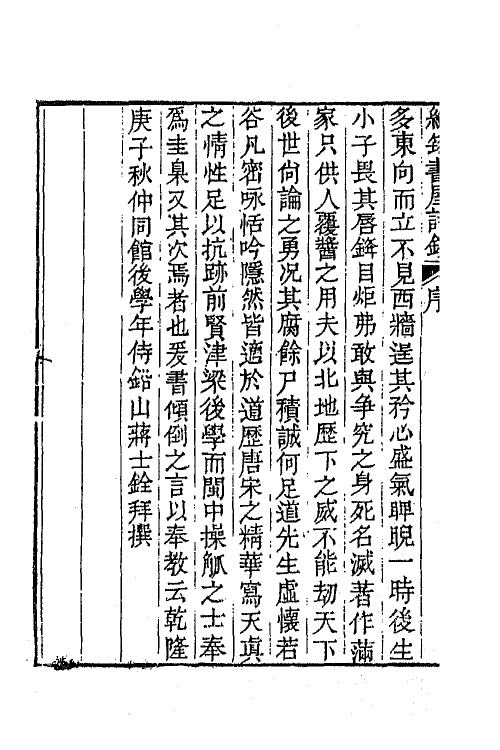 書屋詩鈔 序
多東向而立不見西牆逞其矜心盛氣睥睨一時後生
小子畏其唇鋒目炬弗敢與爭究之身死名滅著作滿
家只供人覆醬之用夫以北地歷下之威不能刼天下
後世尙論之勇况其腐餘尸積誠何足道先生虛懷若
谷凡密咏恬吟隱然皆適於道歷唐宋之精華寫天眞
之情性足以抗跡前賢津梁後學而閩中操觚之士奉
爲圭臬又其次焉者也爰書傾倒之言以奉教云乾隆
庚子秋仲同館後學年侍鉛山蔣士銓拜撰